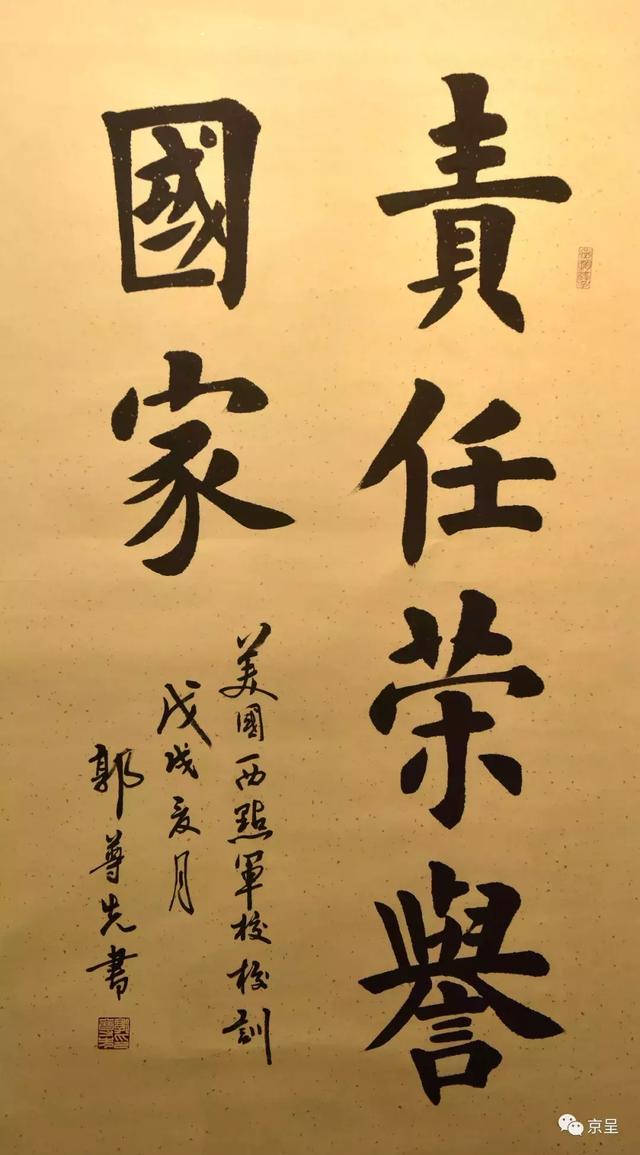 責任荣譽
國家
美國西點軍校校訓
戊戌夏月
郭尊先書
京呈